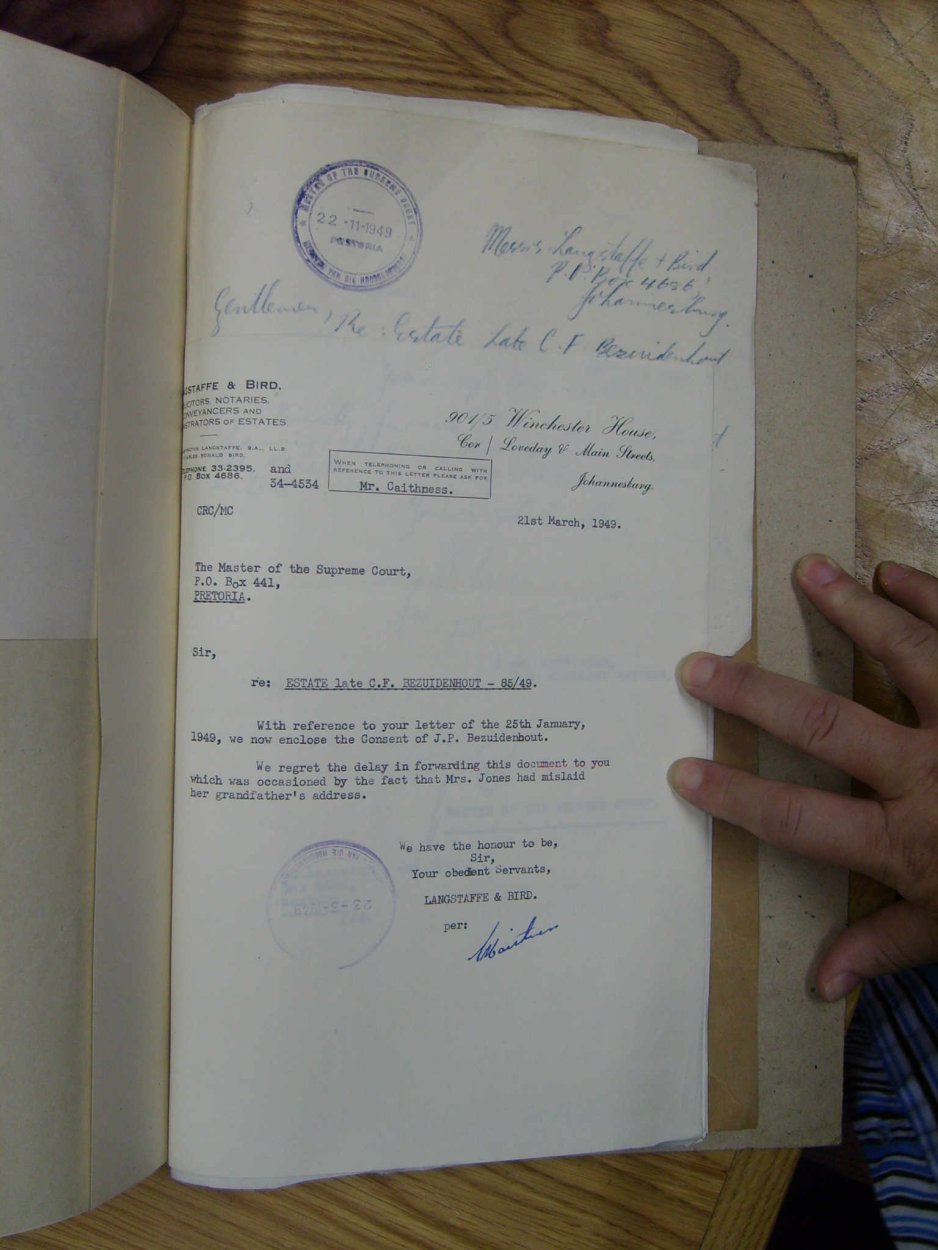 MASTER OF THE SUPREME COURT
22-11-1949
PRETORIA
VAN DIE HOOGGEREGSHOF
Messrs Langstaffe + Bird
P.O. Box 4686
Johannesburg.
Gentlemen, Re: Estate Late C.F. Bezuidenhout
GSTAFFE & BIRD,
ICITORS, NOTARIES,
NVEYANCERS AND
ISTRATORS OF ESTATES
LANGSTAFFE, B.A., LL.B.
RONALD BIRD.
LEPHONE 33-2395. and
P.O. BOX 4686.
34-4534
WHEN TELEPHONING OR CALLING WITH
REFERENCE TO THIS LETTER PLEASE ASK FOR
Mr. Caithness.
901/5 Winchester House,
Cor / Loveday & Main Streets,
Johannesburg.
CRC/MC
21st March, 1949.
The Master of the Supreme Court,
P.O. Box 441,
PRETORIA.
Sir,
re: ESTATE late C.F. BEZUIDENHOUT - 85/49.
With reference to your letter of the 25th January,
1949, we now enclose the Consent of J.P. Bezuidenhout.
We regret the delay in forwarding this document to you
which was occasioned by the fact that Mrs. Jones had mislaid
her grandfather's address.
We have the honour to be,
Sir,
Your obedient Servants,
LANGSTAFFE & BIRD.
per:
23-3-1949